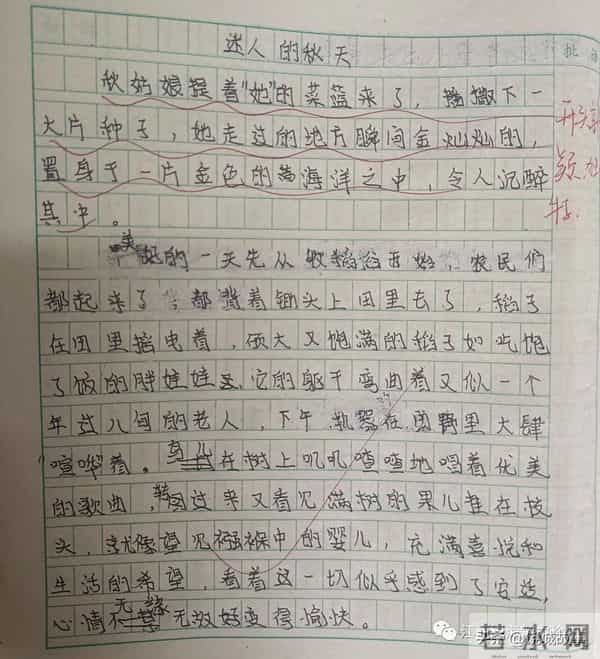 迷人的秋天
秋姑娘提着“她”的菜蓝来了，撒下一
大片种子，她走过的地方瞬间金灿灿的，
置身于一片金色的海洋之中，令人沉醉
其中。
美的一天先从收稻开始，农民们
都起来了，都背着锄头上田里去了，稻子
在田里摇曳着，硕大又饱满的稻子如吃饱
了饭的胖娃娃，它的躯干弯曲着又似一个
年过八旬的老人，下午，机器在田野里大肆
“喧哗”着。鸟儿在树上叽叽喳喳地唱着优美
的歌曲，转过来又看见满树的果儿挂在枝
头，就像望见襁褓中的婴儿，充满喜悦和
生活的希望，看着这一切似乎感到了安适，
心情无缘无故好变得愉快。
开头
若水网